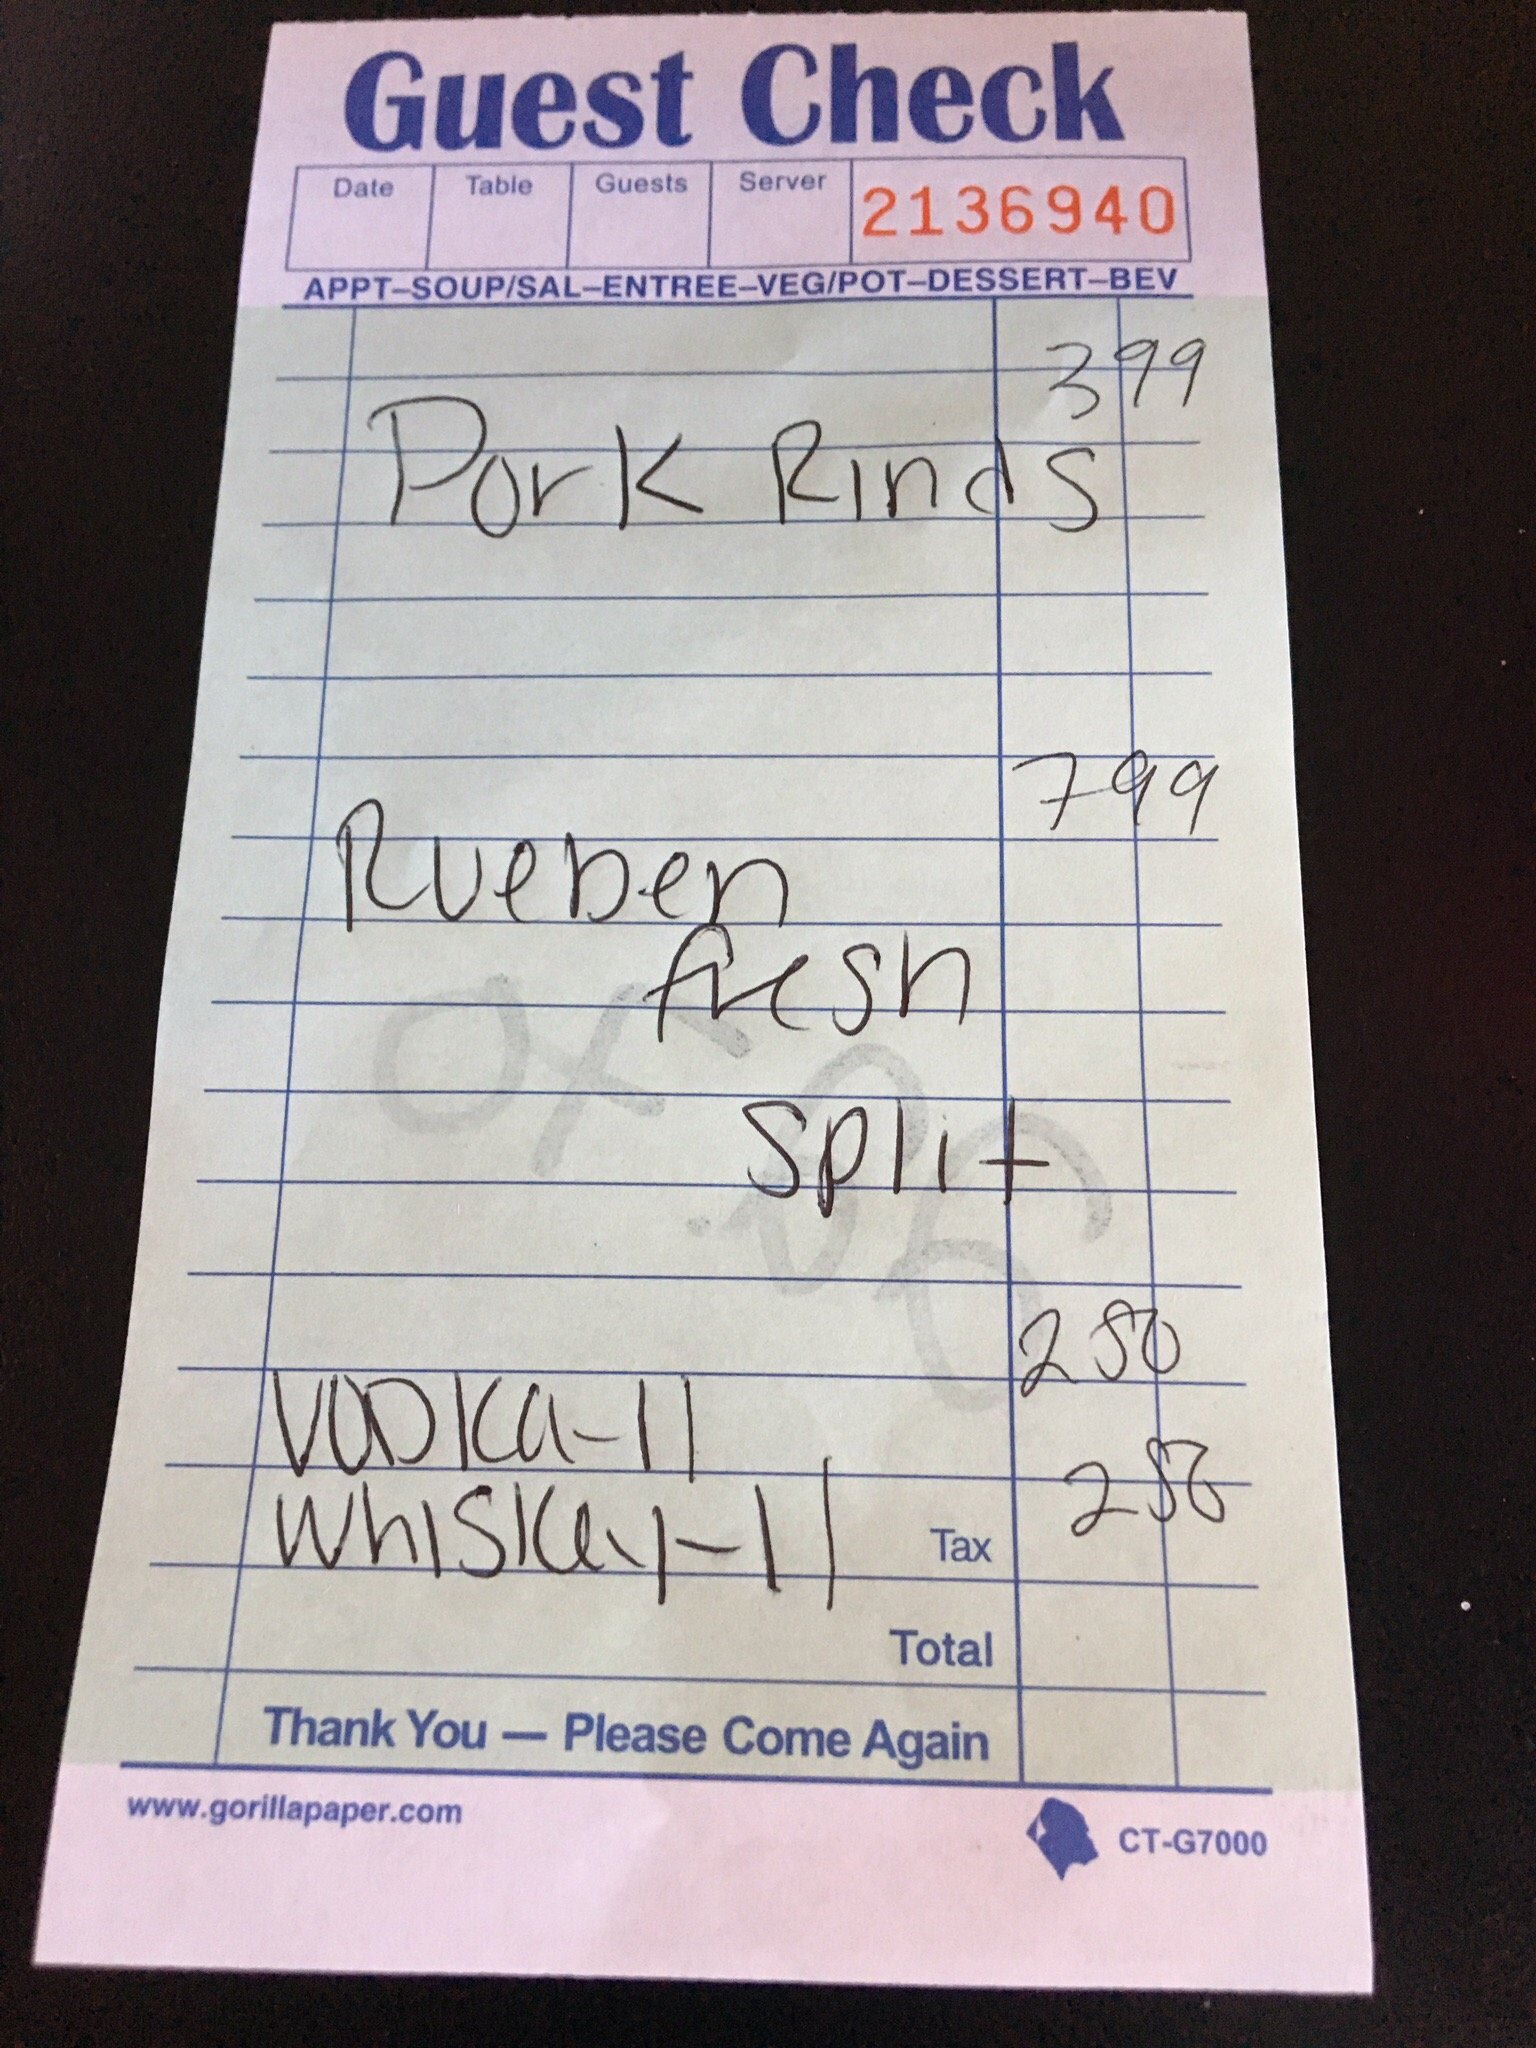 Guest Check
Date Table Guests Server 2136940
APPT–SOUP/SAL–ENTREE–VEG/POT–DESSERT–BEV
399
Pork Rinds
799
Rueben
fresh
split
250
VODKa-11
Whiskey-11
250
Tax
Total
Thank You — Please Come Again
www.gorillapaper.com
CT-G7000